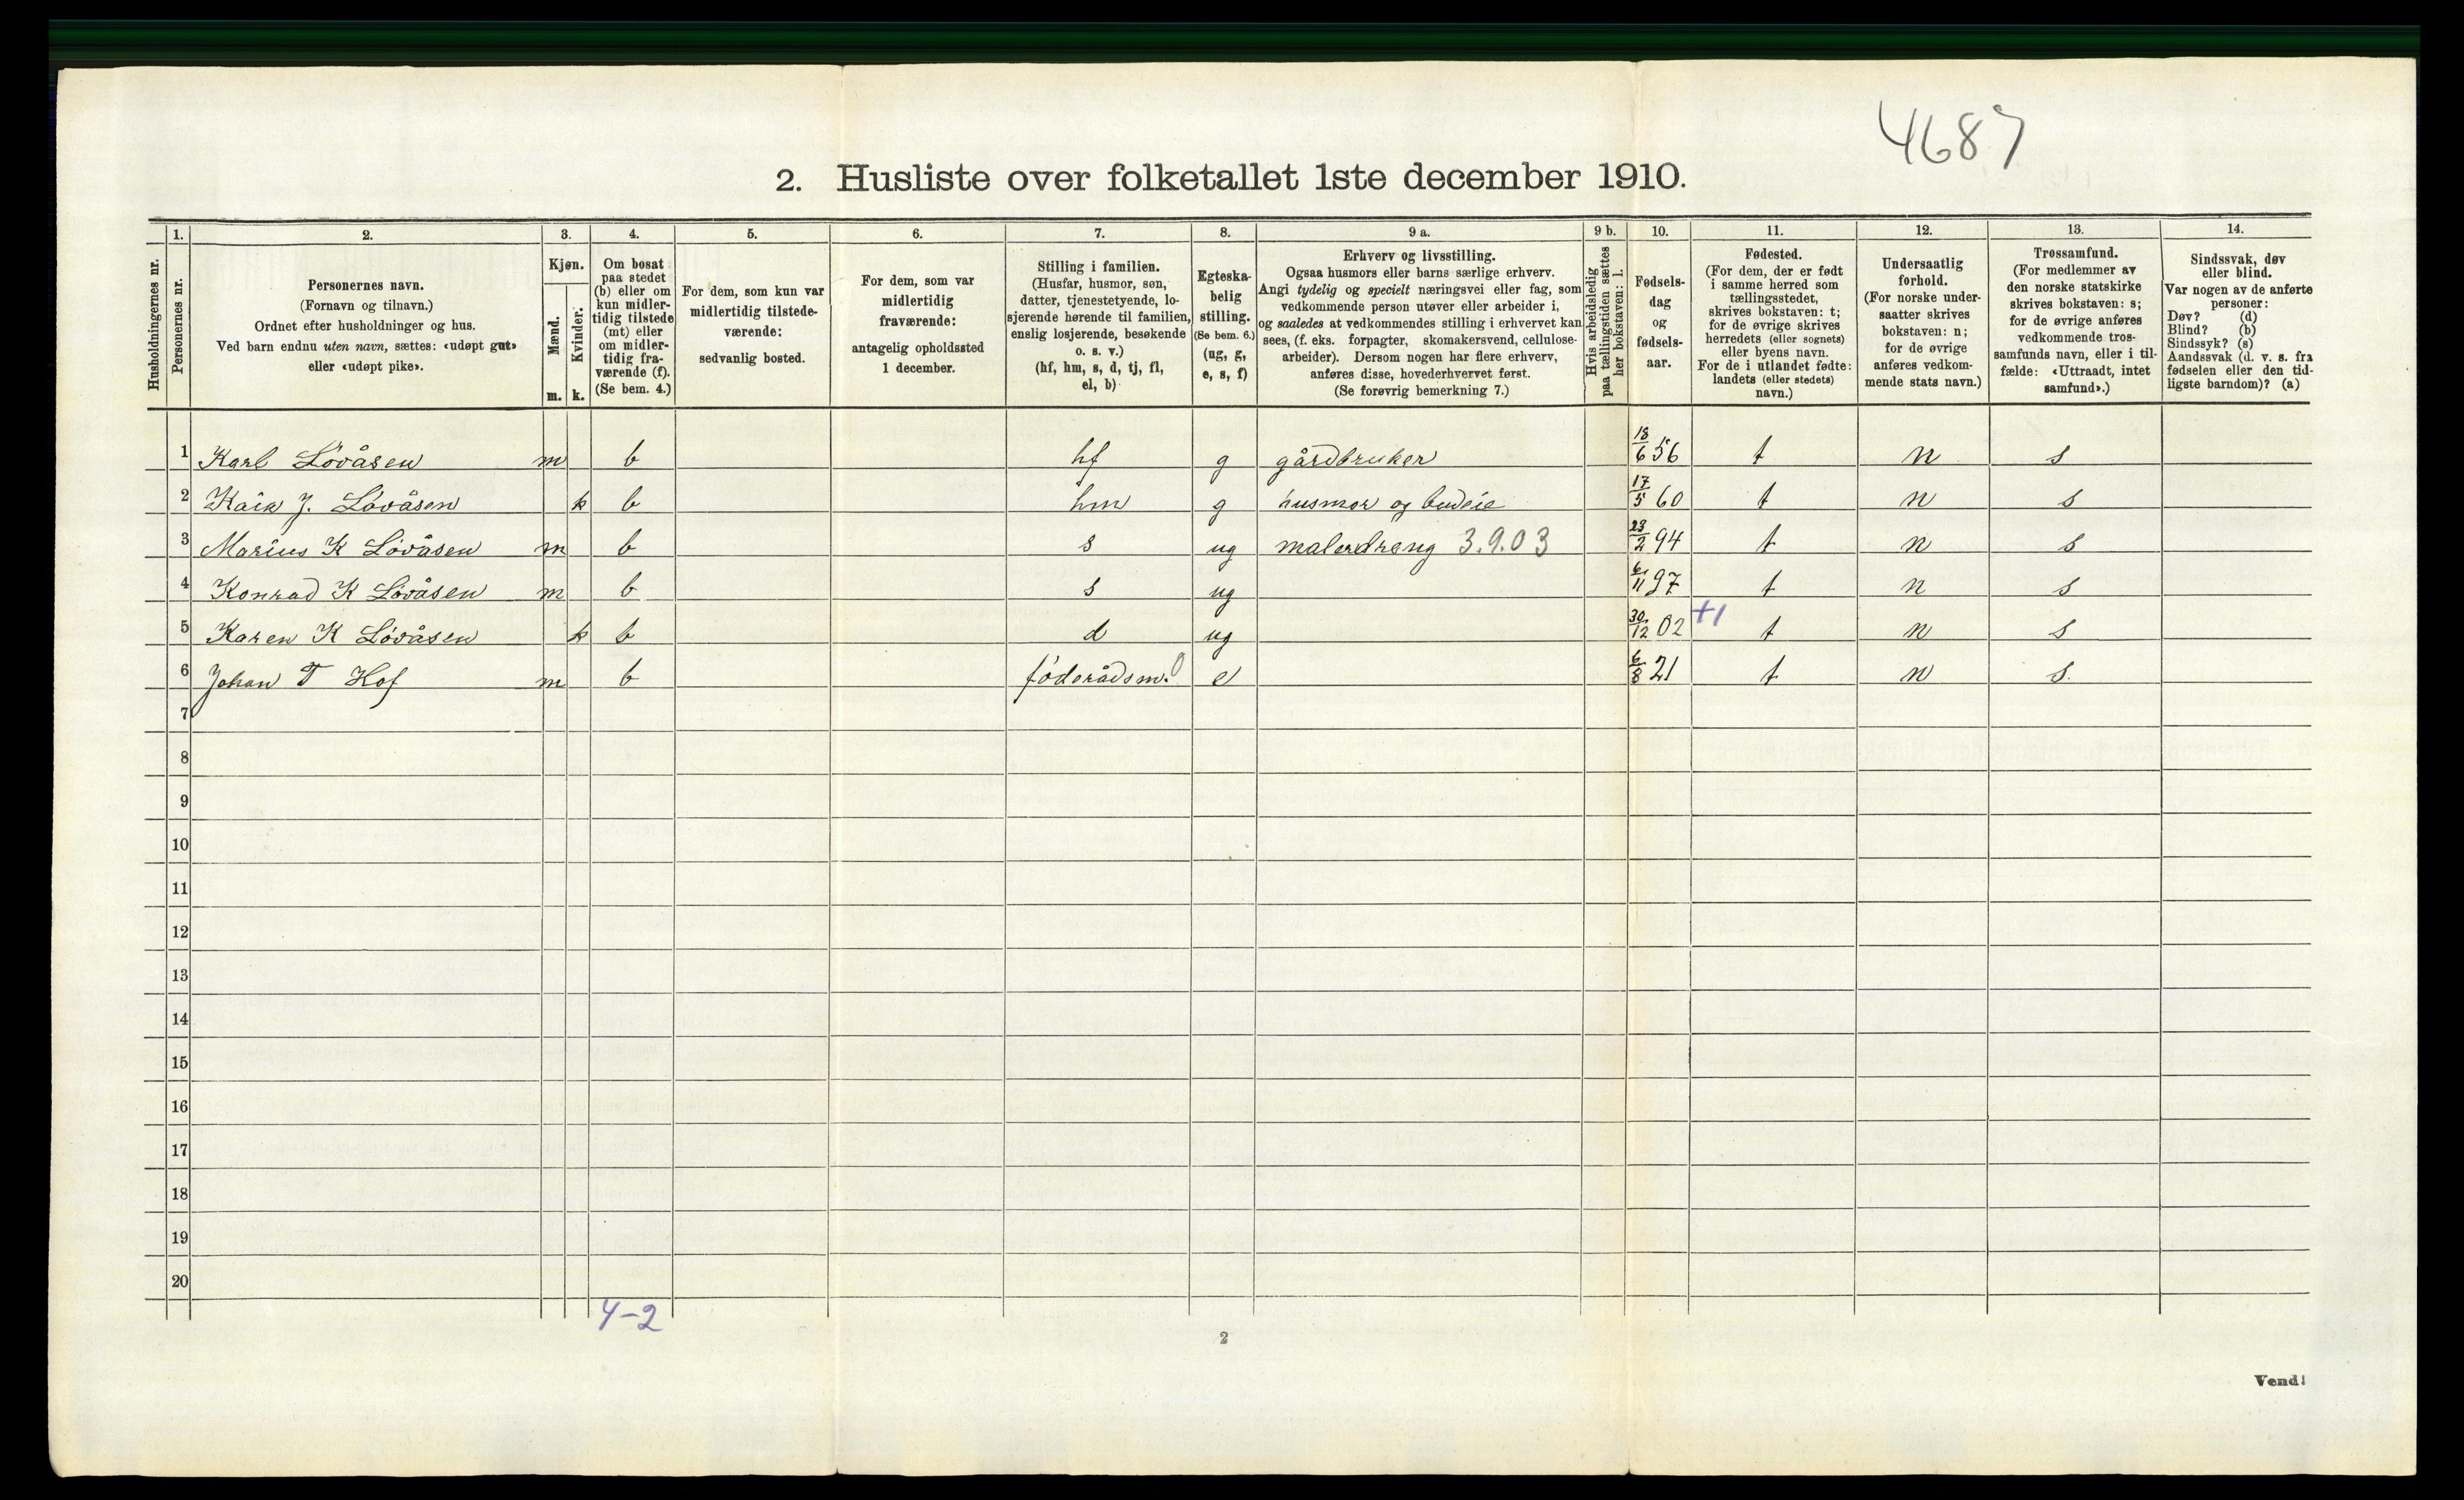 4687
2. Husliste over folketallet 1ste december 1910.
1. 2. 3. 4. 5. 6. 7. 8. 9 a. 9 b. 10. 11. 12. 13. 14.
Husholdningernes nr.
Personernes nr.
Personernes navn.
(Fornavn og tilnavn.)
Ordnet efter husholdninger og hus.
Ved barn endnu uten navn, sættes: «udøpt gut»
eller «udøpt pike».
Kjøn.
Mænd.
Kvinder.
m. k.
Om bosat
paa stedet
(b) eller om
kun midler-
tidig tilstede
(mt) eller
om midler-
tidig fra-
værende (f).
(Se bem. 4.)
For dem, som kun var
midlertidig tilstede-
værende:
sedvanlig bosted.
For dem, som var
midlertidig
fraværende:
antagelig opholdssted
1 december.
Stilling i familien.
(Husfar, husmor, søn,
datter, tjenestetyende, lo-
sjerende hørende til familien,
enslig losjerende, besøkende
o. s. v.)
(hf, hm, s, d, tj, fl,
el, b)
Egteska-
belig
stilling.
(Se bem. 6.)
(ug, g,
e, s, f)
Erhverv og livsstilling.
Ogsaa husmors eller barns særlige erhverv.
Angi tydelig og specielt næringsvei eller fag, som
vedkommende person utøver eller arbeider i,
og saaledes at vedkommendes stilling i erhvervet kan
sees, (f. eks. forpagter, skomakersvend, cellulose-
arbeider). Dersom nogen har flere erhverv,
anføres disse, hovederhvervet først.
(Se forøvrig bemerkning 7.)
Hvis arbeidsledig
paa tællingstiden sættes
her bokstaven: l.
Fødsels-
dag
og
fødsels-
aar.
Fødested.
(For dem, der er født
i samme herred som
tællingsstedet,
skrives bokstaven: t;
for de øvrige skrives
herredets (eller sognets)
eller byens navn.
For de i utlandet fødte:
landets (eller stedets)
navn.)
Undersaatlig
forhold.
(For norske under-
saatter skrives
bokstaven: n;
for de øvrige
anføres vedkom-
mende stats navn.)
Trossamfund.
(For medlemmer av
den norske statskirke
skrives bokstaven: s;
for de øvrige anføres
vedkommende tros-
samfunds navn, eller i til-
fælde: «Uttraadt, intet
samfund».)
Sindssvak, døv
eller blind.
Var nogen av de anførte
personer:
Døv? (d)
Blind? (b)
Sindssyk? (s)
Aandssvak (d. v. s. fra
fødselen eller den tid-
ligste barndom)? (a)
1 Karl Lövåsen m b hf g gårdbruker 18/6 56 t n s
2 J. Lövåsen k b hm g husmor og budeie 17/5 60 t n s
3 Marius K Lövåsen m b s ug malerdreng 3.9.03 23/2 94 t n s
4 Konrad K Lövåsen m b s ug 6/11 97 t n s
5 Karen K Lövåsen k b d ug 30/12 02 +1 t n s
6 Johan T Hof m b föderådsm. 0 e 6/8 21 t n s.
7
8
9
10
11
12
13
14
15
16
17
18
19
20
4-2
2
Vend!